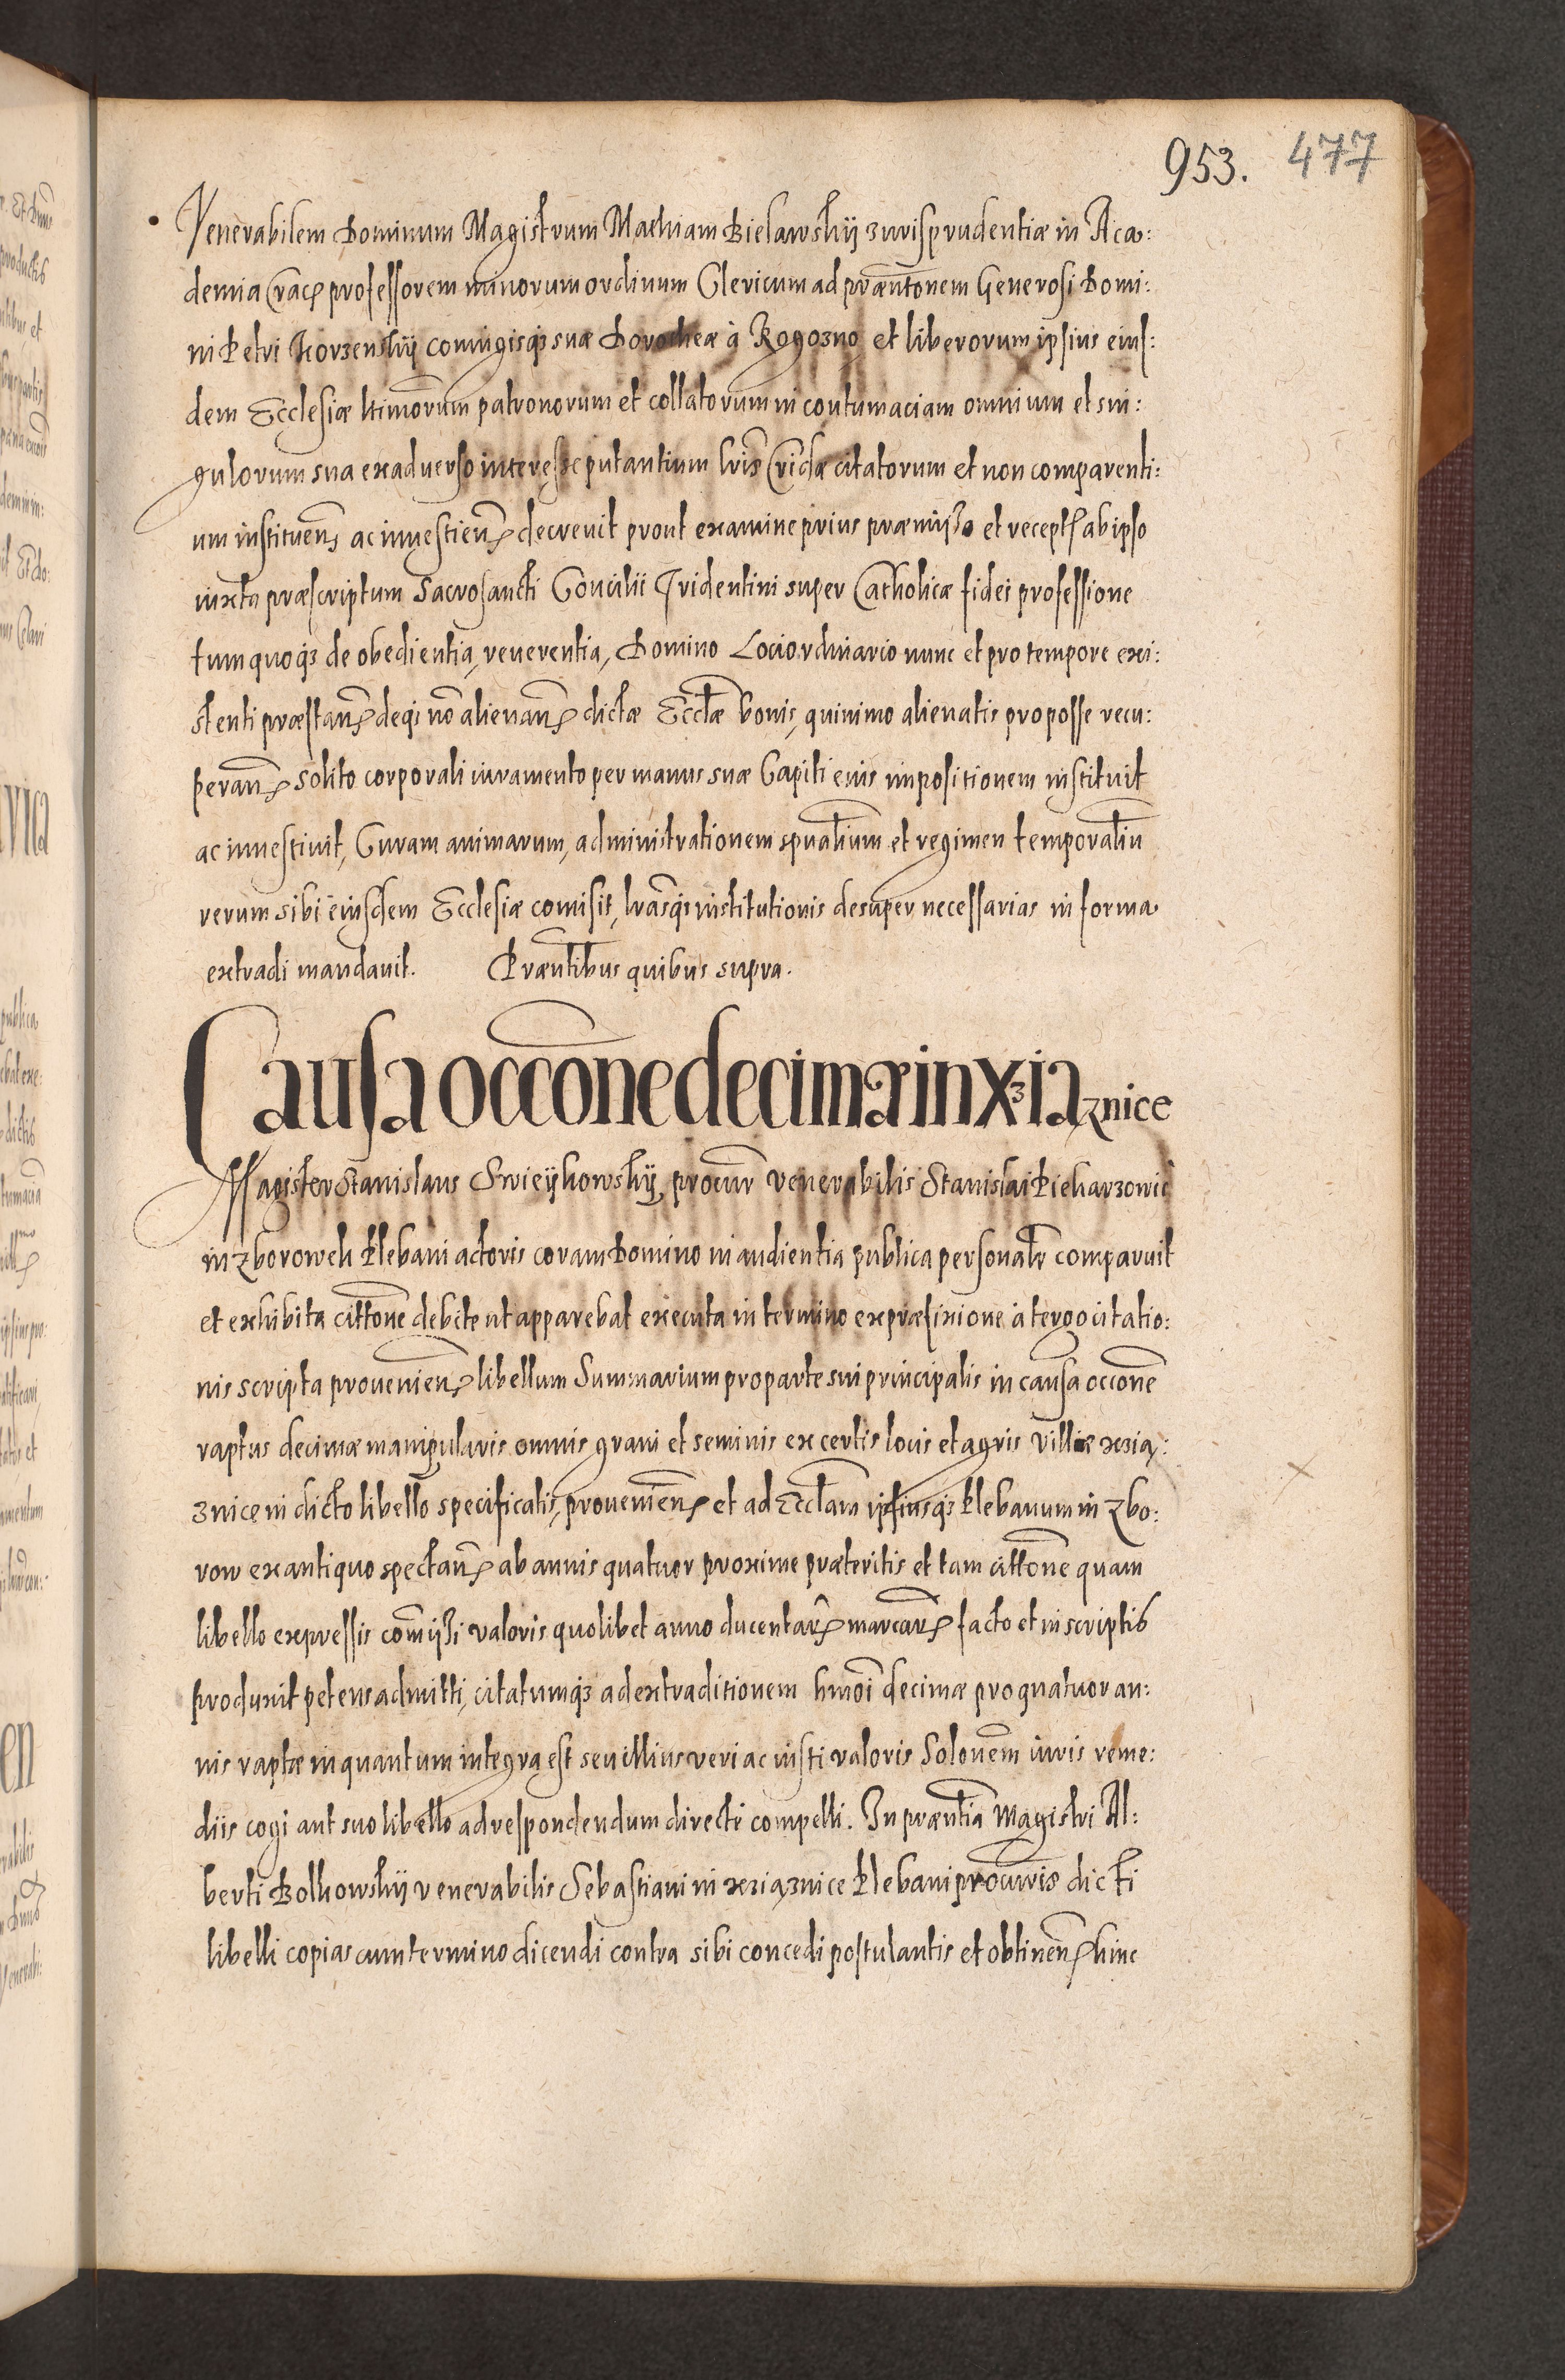 953. 477
Venerabilem Dominum Magistrum Mathiam Bielawskij Jurisprudentiæ in Aca:
demia Crac: professorem minorum ordinum Clericum ad præntonem Generosi Domi:
ni Petri Korzenskij coniugisq3 suæ Dorotheæ à Rogozno et liberorum ipsius eius:
dem Ecclesiæ ltimorum patronorum et collatorum in contumaciam omnium et sin:
gulorum sua exaduerso interesse putantium lris Cridæ citatorum et non comparenti:
um instituen: ac inuestien: decreuit prout examine prius præmisso et recept: ab ipso
iuxta præscriptum Sacrosancti Concilii Tridentini super Catholicæ fidei professione
tum quoq3 de obedientia, reuerentia, Domino Loci ordinario nunc et pro tempore exi:
stenti præstan: deq3 nõ alienan: dictæ Ecclæ bonis, quinimo alienatis pro posse recu:
peran: solito corporali iuramento per manus suæ Capiti eius impositionem instituit
ac inuestiuit, Curam animarum, administrationem spualium et regimen temporaliũ
rerum sibi eiusdem Ecclesiæ comisit, lrasq3 institutionis desuper necessarias in forma
extradi mandauit. Præntibus quibus supra.
Causa occone decimæ in Xziąznice
Magister Stanislaus Swieijkowskij procur venerabilis Stanislai Piekarzowic
in Zborowek Plebani actoris coram Domino in audientia publica personalr comparuit
et exhibita cittone debite ut apparebat executa in termino ex præfixione à tergo citatio:
nis scripta prouenien: libellum Summarium pro parte sui principalis in causa occone
raptus decimæ manipularis omnis grani et seminis ex certis locis et agris villæ xzią:
znice in dicto libello specificatis, prouenien: et ad Ecclam ipsiusq3 Plebanum in Zbo:
row ex antiquo spectan: ab annis quatuor proxime præteritis et tam cittone quam
libello expressis comissi valoris quolibet anno ducentar: marcar: facto et in scriptis
produxit petens admitti, citatumq3 ad extraditionem hmoi decimæ pro quatuor an:
nis raptæ in quantum integra est seu illius veri ac iusti valoris Solonem iuris reme:
diis cogi aut suo libello ad respondendum directe compelli. In præntia Magistri Al:
berti Bolkowskij venerabilis Sebastiani in xziąznice Plebani procuris dicti
libelli copias cum termino dicendi contra sibi concedi postulantis et obtinen: hinc